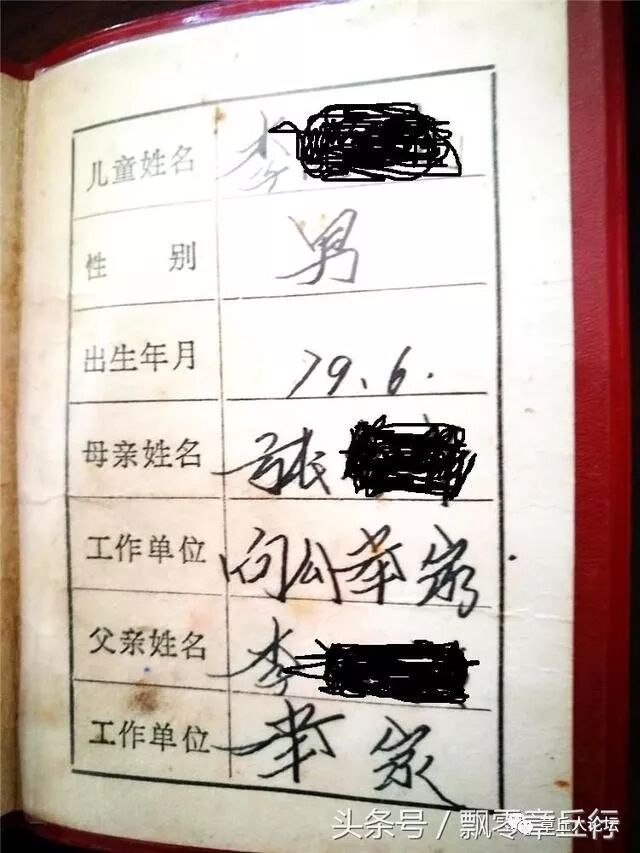 儿童姓名 李
性别 男
出生年月 79.6.
母亲姓名 张
工作单位 向公华家
父亲姓名 李
工作单位 华家
头条号/飘零章丘行
章丘人论坛